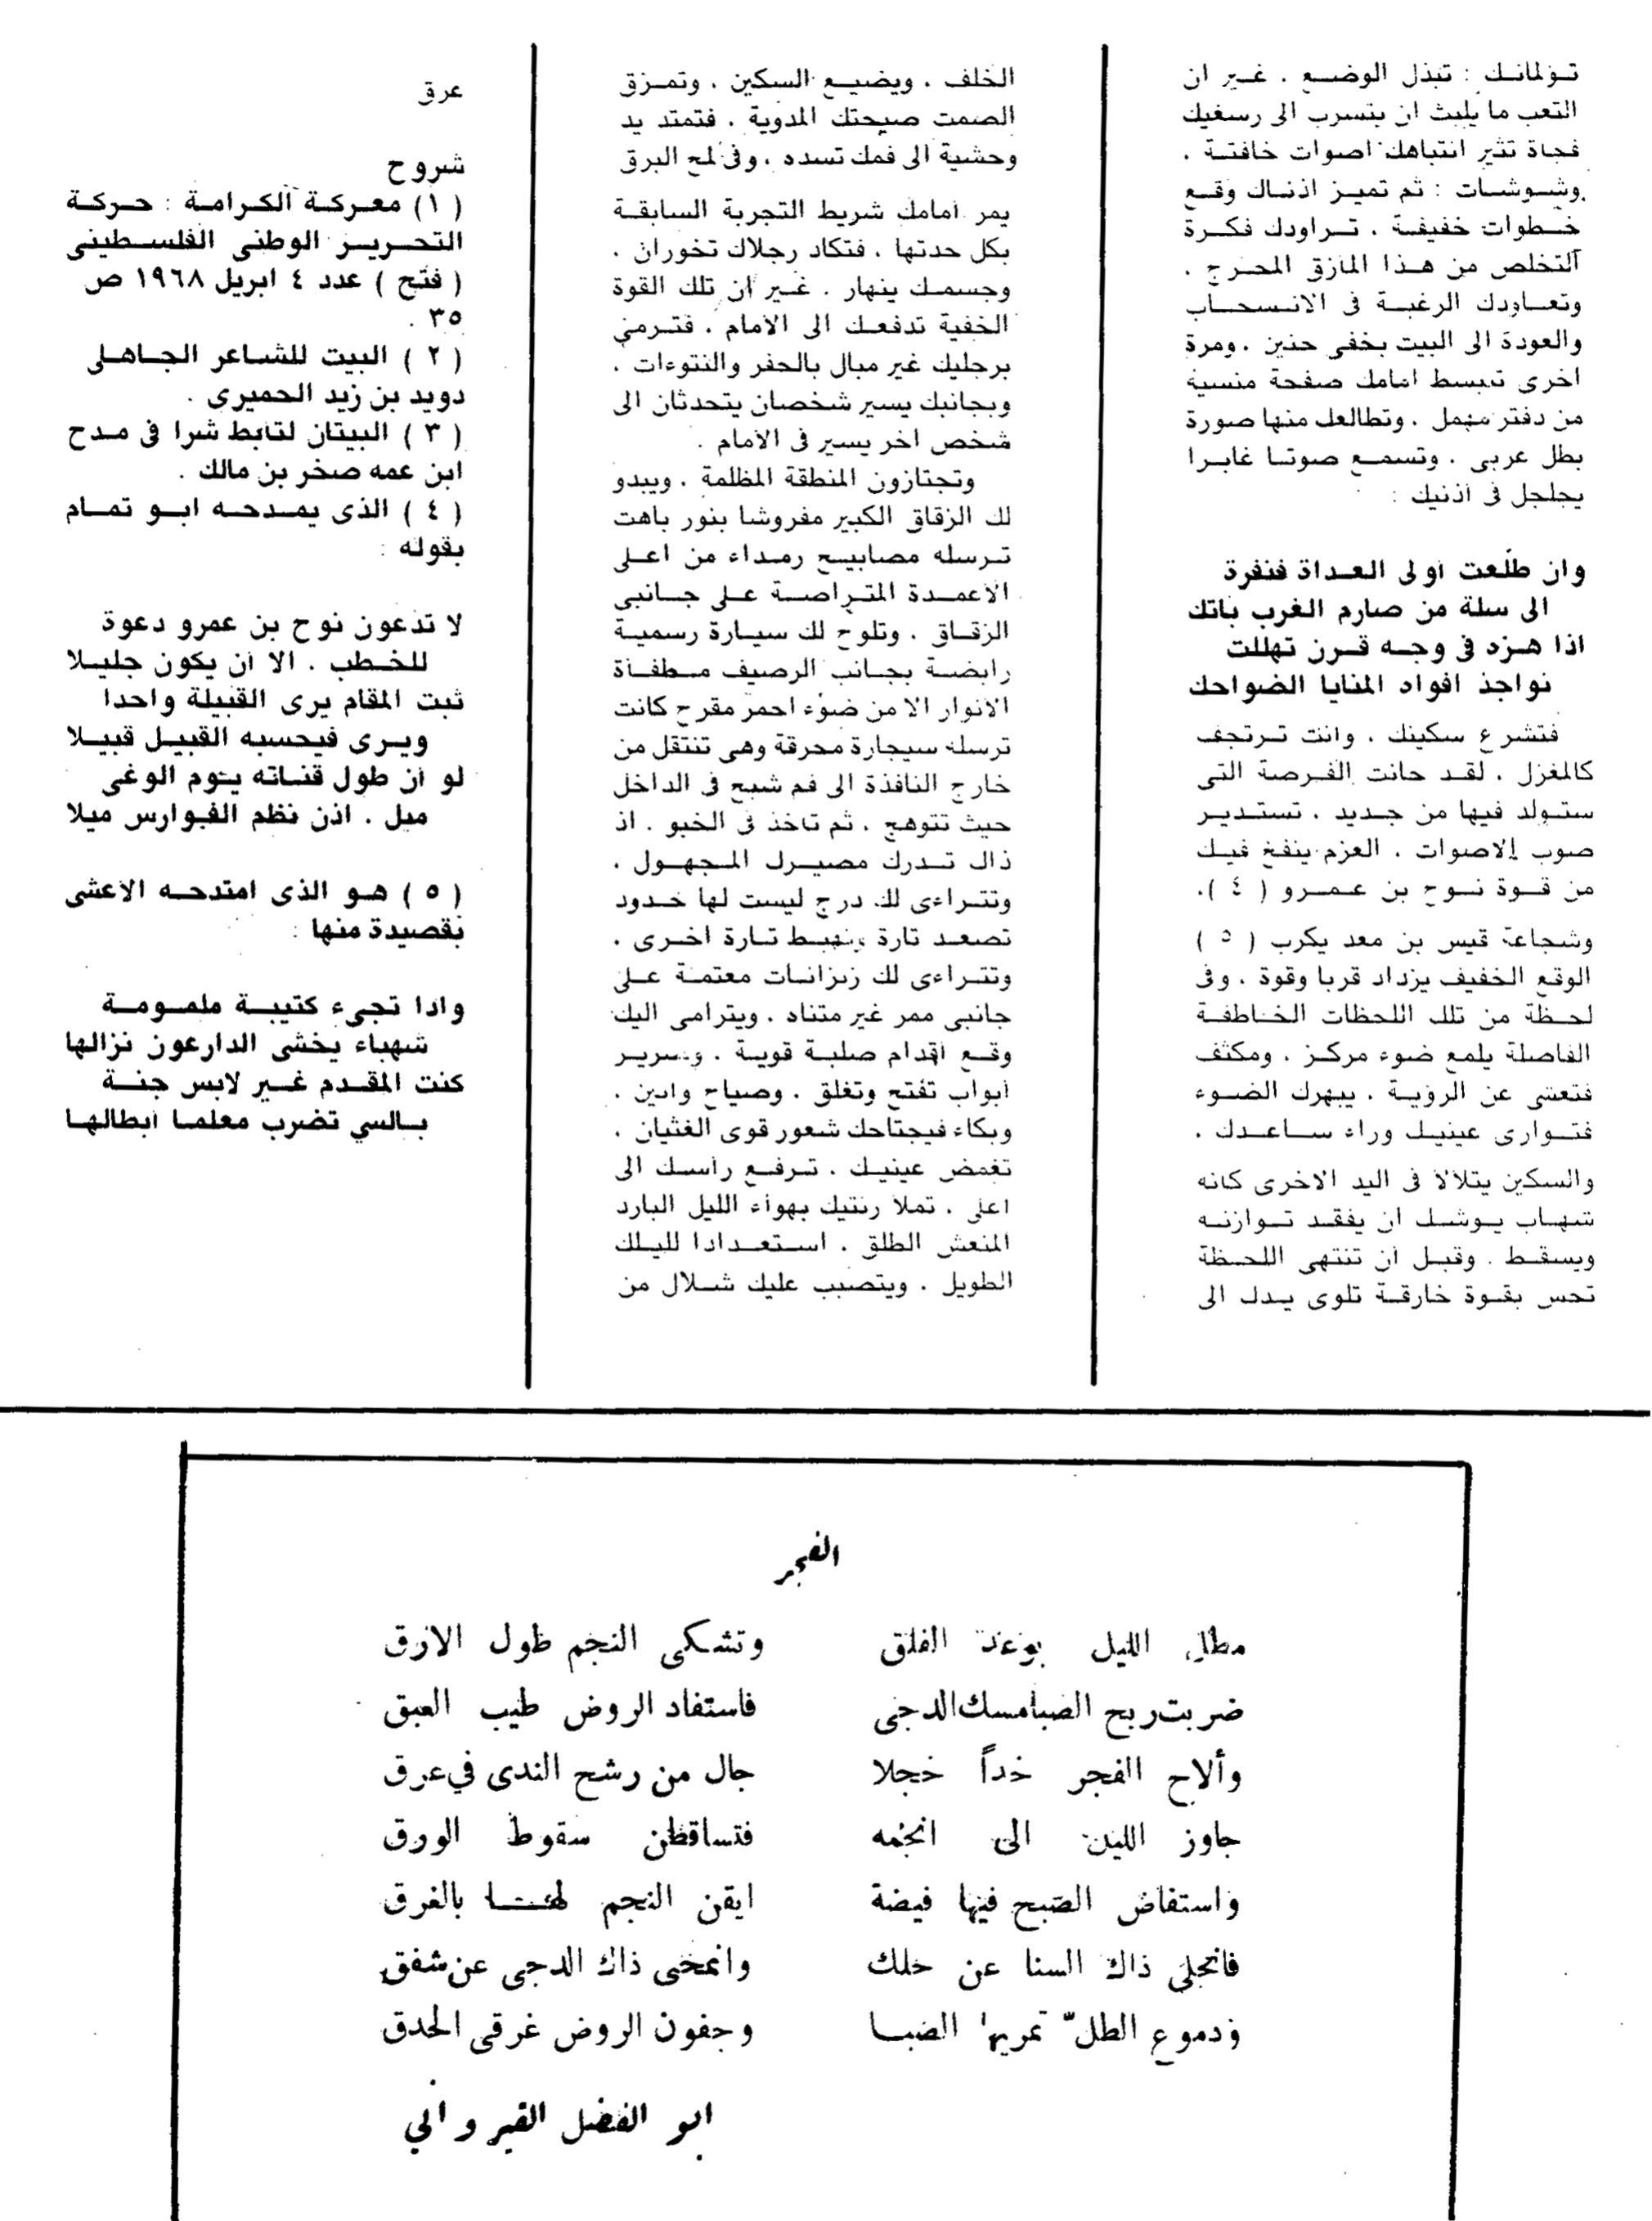 تـؤلمانـك : تبذل الوضـع . غـير ان
التعب ما يلبث ان يتسرب الى رسغيك
فجاة تثير انتباهك اصوات خافتـة .
وشـوشـات : ثم تميـز اذنـاك وقـع
خـطوات خفيفـة . تـراودك فكـرة
التخلص من هـذا المازق المحـرج .
وتعـاودك الرغبـة فى الانـسحـاب
والعودة الى البيت بخفى حنين . ومرة
اخرى تبسط امامك صفحة منسية
من دفتر مهمل . وتطالعك منها صورة
بطل عربى . وتسمـع صوتـا غابـرا
يجلجل فى أذنيك :
وان طلعت أولى العـداة فنفرة
الى سلة من صارم الغرب باتك
اذا هـزه فى وجـه قـرن تهللت
نواجذ افواه المنايا الضواحك
فتشرع سكينك . وانت تـرتجف
كالمغزل . لقـد حانت الفـرصة التى
ستـولد فيها من جـديد . تستـديـر
صوب الاصوات . العزم ينفخ فيـك
من قـوة نـوح بن عـمـرو ( ٤ ).
وشجاعة قيس بن معد يكرب ( ٥ )
الوقع الخفيف يزداد قربا وقوة . وفى
لحـظة من تلك اللحظات الخـاطفـة
الفاصلة يلمع ضوء مركـز . ومكثف
فتعشى عن الرؤيـة . يبهرك الضـوء
فتـوارى عينيـك وراء سـاعـدك .
والسكين يتلالا فى اليد الاخرى كانه
شهـاب يـوشـك ان يفقـد تـوازنـه
ويسقـط . وقبـل أن تنتهى اللحـظة
تحس بقـوة خارقـة تلوى يـدك الى
الخلف . ويضيـع السكين . وتمـزق
الصمت صيحتك المدوية . فتمتد يد
وحشية الى فمك تسده . وفى لمح البرق
يمر أمامك شريط التجربة السابقـة
بكل حدتها . فتكاد رجلاك تخوران .
وجسمـك ينهار . غـير أن تلك القوة
الخفية تدفعـك الى الأمام . فتـرمى
برجليك غير مبال بالحفر والنتوءات .
وبجانبك يسير شخصان يتحدثان الى
شخص اخر يسير فى الأمام .
وتجتازون المنطقة المظلمة . ويبدو
لك الزقاق الكبير مفروشا بنور باهت
تـرسله مصابيـح رمـداء من اعـلى
الأعمـدة المتـراصـة عـلى جـانبى
الزقـاق . وتلوح لك سيـارة رسميـة
رابضـة بجـانب الرصيف مـطفـأة
الانوار الا من ضوء احمر مقرح كانت
ترسله سيجارة محرقة وهى تنتقل من
خارج النافذة الى فم شبح فى الداخل
حيث تتوهج . ثم تاخذ فى الخبو . اذ
ذاك تـدرك مصيـرك المـجهـول .
وتتـراءى لك درج ليست لها حـدود
تصعـد تارة وتهبـط تـارة اخـرى .
وتتـراءى لك زنزانـات معتمـة عـلى
جانبى ممر غير متناه . ويترامى اليك
وقـع أقدام صلبـة قويـة . وصريـر
أبواب تفتح وتغلق . وصياح وانين .
وبكاء فيجتاحك شعور قوى الغثيان .
تغمض عينيـك . تـرفـع رأسـك الى
اعلى . تملا رئتيك بهواء الليل البارد
المنعش الطلق . استـعـدادا لليـلك
الطويل . ويتصبب عليك شـلال من
عرق
شروح
( ١ ) معـركـة الكـرامـة : حـركـة
التحـريـر الوطنى الفلسـطينى
( فتح ) عدد ٤ ابريل ١٩٦٨ ص
٣٥ .
( ٢ ) البيت للشـاعر الجـاهـلى
دويد بن زيد الحميرى .
( ٣ ) البيتان لتابط شرا فى مـدح
ابن عمه صخر بن مالك .
( ٤ ) الذى يمـدحـه ابـو تمـام
بقوله :
لا تدعون نوح بن عمرو دعوة
للخـطب . الا أن يكون جليـلا
ثبت المقام يرى القبيلة واحدا
ويـرى فيحسبه القبيـل قبيـلا
لو أن طول قنـاته يـوم الوغى
ميل . اذن نظم الفـوارس ميلا
( ٥ ) هـو الذى امتدحـه الأعشى
بقصيدة منها :
واذا تجىء كتيبـة ملمـومـة
شهباء يخشى الدارعون نزالها
كنت المقـدم غـير لابس جنـة
بـالسي تضرب معلمـا أبطالهـا
الفجر
مطل الليل بوعد الفلق وتشكى النجم طول الارق
ضربت ريح الصبا مسك الدجى فاستفاد الروض طيب العبق
وألاح الفجر خداً خجلا جال من رشح الندى في عرق
جاوز الليل الى انجمه فتساقطن سقوط الورق
واستفاض الصبح فيها فيضة ايقن النجم لهـا بالغرق
فانجلى ذاك السنا عن حلك وانمحى ذاك الدجى عن شفق
ودموع الطلّ تمريها الصبـا وجفون الروض غرقى الحدق
ابو الفضل القيرواني